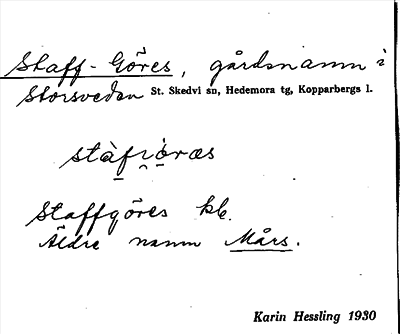 Staff-Göres, gårdsnamn i
Storsveden St. Skedvi sn, Hedemora tg, Kopparbergs l.
Staffgöres kb.
Äldre namn Mårs.
Karin Hessling 1930